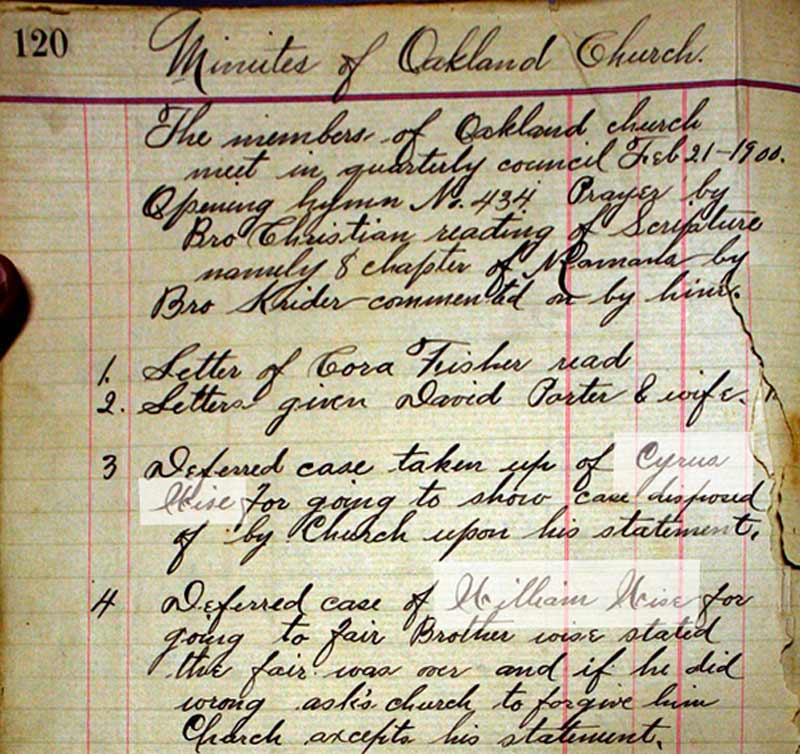 120
Minutes of Oakland Church.
The members of Oakland church
meet in quarterly council Feb 21-1900.
Opening hymn No. 434 Prayer by
Bro Christian reading of Scripture
namely 8 chapter of Romans by
Bro Krider commented on by him.
1. Letter of Cora Fisher read
2. Letters given David Porter & wife.
3 Deferred case taken up of Cyrus
Wise for going to show case disposed
of by Church upon his statement.
4 Deferred case of William Wise for
going to fair Brother wise stated
the fair was over and if he did
wrong ask's church to forgive him
Church axcepts his statement.